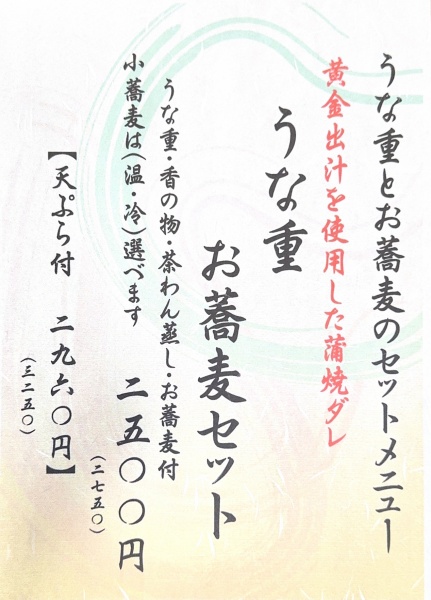 うな重とお蕎麦のセットメニュー
黄金出汁を使用した蒲焼ダレ
うな重
お蕎麦セット
うな重・香の物・茶わん蒸し・お蕎麦付
小蕎麦は(温・冷)選べます
二五〇〇円
(二七五〇)
【天ぷら付 二九六〇円】
(三二五〇)